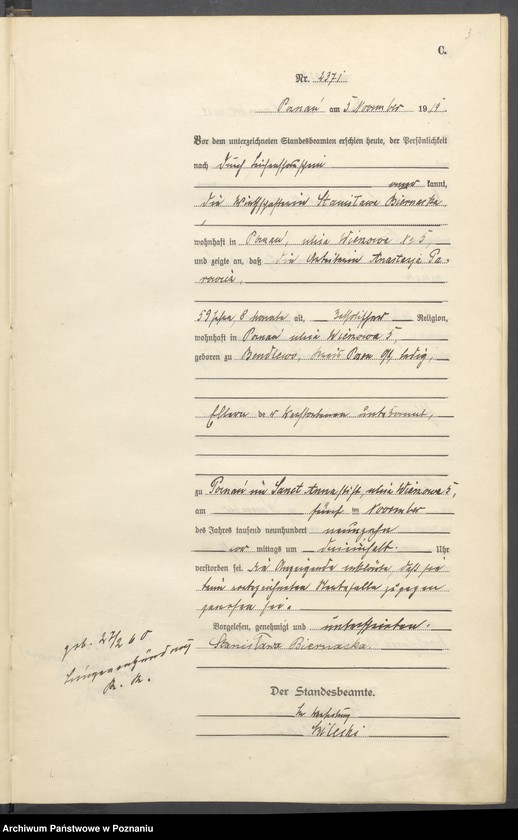 3
C.
Nr. 2371
Poznań am 5 November 1919.
Vor dem unterzeichneten Standesbeamten erschien heute, der Persönlichkeit
nach durch
kannt,
die Wirtschafterin Stanisława Biernacka
wohnhaft in Poznań, ulica Wienowa № 5,
und zeigte an, daß die Arbeiterin Anastazja Pa-
59 Jahre, 8 Monate alt, katholischer Religion,
wohnhaft in Poznań ulica Wienowa 5,
geboren zu Bendlewo, Kreis Posen Ost, ledig,
Eltern der Verstorbenen unbekannt,
zu Poznań im Sanct Annastift, ulica Wienowa 5,
am fünf ten November
des Jahres tausend neunhundert neunzehn
vor mittags um Uhr
verstorben sei. Die Anzeigende erklärte, daß sie
beim vorbezeichneten Sterbefalle zugegen
gewesen sei.
Vorgelesen, genehmigt und unterschrieben.
Stanisława Biernacka.
geb. 27/2 60
Lungenentzündung
Der Standesbeamte.
In Vertretung
Archiwum Państwowe w Poznaniu